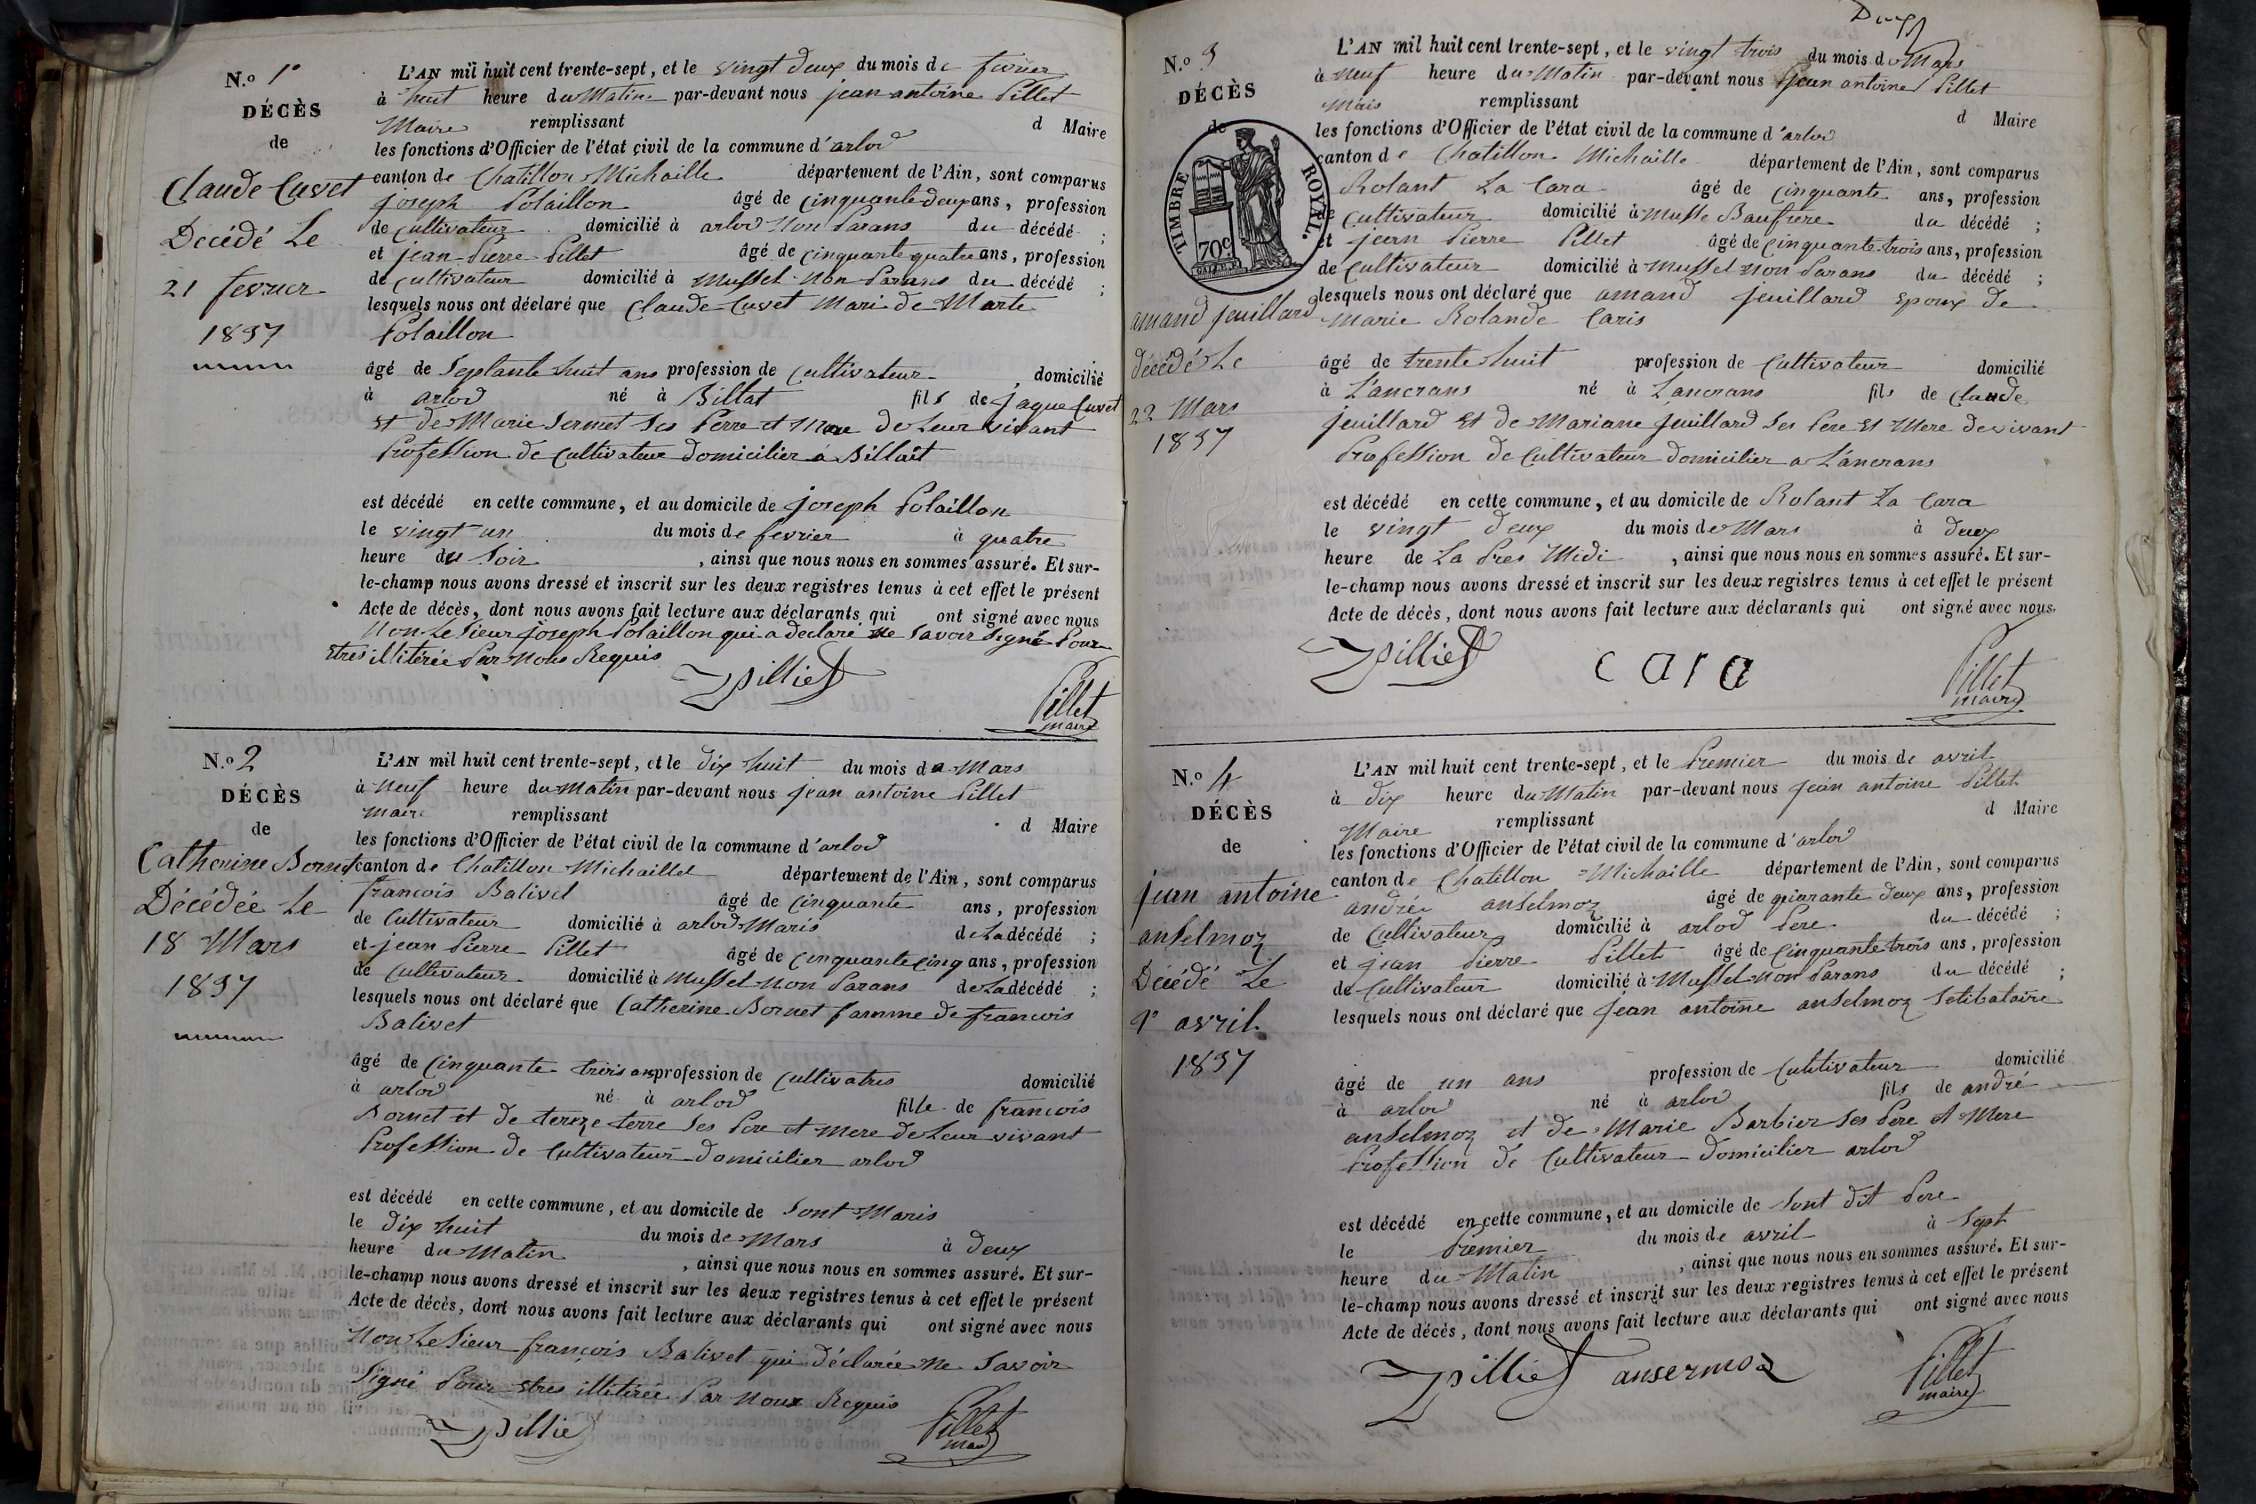 N.o 1o
DÉCÈS
de
Claude Cuvet
Décédé Le
21 fevrier
1837
L'AN mil huit cent trente-sept, et le vingt deux du mois de fevrier
à huit heure du Matin par-devant nous jean antoine Pillet
Maire remplissant d Maire
les fonctions d'Officier de l'état civil de la commune d'arlod
canton de Chatillon Michaille département de l'Ain, sont comparus
joseph Polaillon âgé de cinquante deux ans, profession
de cultivateur domicilié à arlod Non Parans du décédé ;
et jean Pierre Pillet âgé de cinquante quatre ans, profession
de cultivateur domicilié à Mussel Non Parans du décédé ;
lesquels nous ont déclaré que Claude Cuvet Mari de Marte
Polaillon
âgé de Septante huit ans profession de Cultivateur domicilié
à arlod né à Billat fils de jaque Cuvet
et de Marie Sermet Ses Perre et Mere de Leur vivant
Profession de Cultivateur Domicilier a Billiat
est décédé en cette commune, et au domicile de joseph Polaillon
le vingt un du mois de fevrier à quatre
heure du Soir , ainsi que nous nous en sommes assuré. Et sur-
le-champ nous avons dressé et inscrit sur les deux registres tenus à cet effet le présent
Acte de décès, dont nous avons fait lecture aux déclarants qui ont signé avec nous
Non Le Sieur joseph Polaillon qui a declaré ne Savoir Signé Pour
etres illitérée Par Nous Requis
Pillet
Pillet
maire
N.o 2
DÉCÈS
de
Catherine Bornet
Décédée Le
18 Mars
1837
L'AN mil huit cent trente-sept, et le dix huit du mois de Mars
à Neuf heure du Matin par-devant nous jean antoine Pillet
Maire remplissant d Maire
les fonctions d'Officier de l'état civil de la commune d'arlod
canton de Chatillon Michaillet département de l'Ain, sont comparus
francois Balivet âgé de Cinquante ans, profession
de Cultivateur domicilié à arlod Maris de La décédé ;
et jean Pierre Pillet âgé de cinquante cinq ans, profession
de Cultivateur domicilié à Mussel Non Parans de La décédé ;
lesquels nous ont déclaré que Catherine Bornet famme de francois
Balivet
âgé de Cinquante trois ans profession de Cultivatres domicilié
à arlod né à arlod fille de francois
Bornet et de tereze terre Ses Pere et mere de Leur vivant
Profession de Cultivateur Domicilier arlod
est décédé en cette commune, et au domicile de Sont Maris
le dix huit du mois de Mars à deux
heure du Matin , ainsi que nous nous en sommes assuré. Et sur-
le-champ nous avons dressé et inscrit sur les deux registres tenus à cet effet le présent
Acte de décès, dont nous avons fait lecture aux déclarants qui ont signé avec nous
Non Le Sieur françois Balivet qui déclarée ne Savoir
Signé Pour etres illitirée Par Nous Requis
Pillet
Pillet
maire
N.o 3
DÉCÈS
de
TIMBRE ROYAL.
70c
amand juillard
décédé Le
22 Mars
1837
L'AN mil huit cent trente-sept, et le vingt trois du mois de Mars
à Neuf heure du Matin par-devant nous jean antoine Pillet
Mais remplissant d Maire
les fonctions d'Officier de l'état civil de la commune d'arlod
canton de Chatillon Michaille département de l'Ain, sont comparus
Rolant La Cara âgé de cinquante ans, profession
de Cultivateur domicilié à Musse Baufrere du décédé ;
et jean Pierre Pillet âgé de cinquante trois ans, profession
de Cultivateur domicilié à Mussel Non Parans du décédé ;
lesquels nous ont déclaré que amand juillard Epoux de
Marie Rolande Caris
âgé de trente huit profession de Cultivateur domicilié
à L'ancrans né à Lancrans fils de Claude
juillard et de Mariane juillard Ses Pere et Mere de vivant
Profession de Cultivateur Domicilier a L'ancrans
est décédé en cette commune, et au domicile de Rolant La Cara
le vingt deux du mois de Mars à deux
heure de La Pres Midi , ainsi que nous nous en sommes assuré. Et sur-
le-champ nous avons dressé et inscrit sur les deux registres tenus à cet effet le présent
Acte de décès, dont nous avons fait lecture aux déclarants qui ont signé avec nous.
Pillet cara Pillet
maire
N.o 4
DÉCÈS
de
jean antoine
anselmoz
Décédé Le
1o avril
1837
L'AN mil huit cent trente-sept, et le Premier du mois de avril
à dix heure du Matin par-devant nous jean antoine Pillet
Maire remplissant d Maire
les fonctions d'Officier de l'état civil de la commune d'arlod
canton de Chatillon Michaille département de l'Ain, sont comparus
andrée anselmoz âgé de quarante deux ans, profession
de Cultivateur domicilié à arlod Pere du décédé ;
et jean Pierre Pillet âgé de Cinquante trois ans, profession
de Cultivateur domicilié à Mussel Non Parans du décédé ;
lesquels nous ont déclaré que jean antoine anselmoz Selibataire
âgé de un ans profession de Cultivateur domicilié
à arlod né à arlod fils de andré
anselmoz et de Marie Barbier Ses Pere et Mere
Profession de Cultivateur Domicilier arlod
est décédé en cette commune, et au domicile de Sont dit Pere
le Premier du mois de avril à Sept
heure du Matin , ainsi que nous nous en sommes assuré. Et sur-
le-champ nous avons dressé et inscrit sur les deux registres tenus à cet effet le présent
Acte de décès, dont nous avons fait lecture aux déclarants qui ont signé avec nous
Pillet ansermoz Pillet
maire